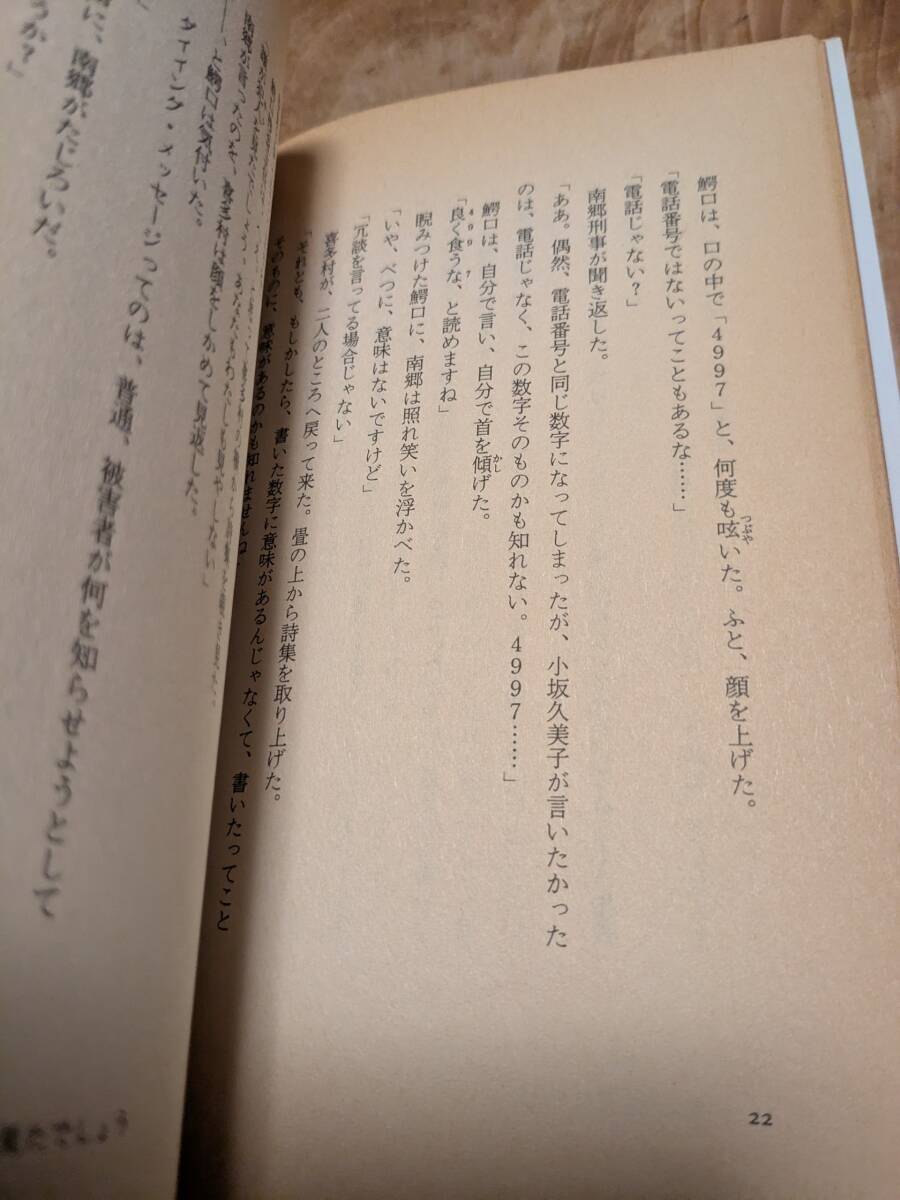 鰐口は、口の中で「4997」と、何度も呟いた。ふと、顔を上げた。
つぶや
「電話番号ではないってこともあるな……」
「電話じゃない?」
南郷刑事が聞き返した。
「ああ。偶然、電話番号と同じ数字になってしまったが、小坂久美子が言いたかった
のは、電話じゃなく、この数字そのものかも知れない。4997……」
鰐口は、自分で言い、自分で首を傾げた。
かし
「良く食うな、と読めますね」
499 7
睨みつけた鰐口に、南郷は照れ笑いを浮かべた。
「いや、べつに、意味はないですけど」
「冗談を言ってる場合じゃない」
喜多村が、二人のところへ戻って来た。畳の上から詩集を取り上げた。
「それとも、もしかしたら、書いた数字に意味があるんじゃなくて、書いたってこと
そのものに、意味があるのかも知れませんね
22
と鰐口は気付いた。
ダイイング・メッセージってのは、普通、被害者が何を知らせようとして
に、南郷がたじろいだ。
うか?」
たでしょう